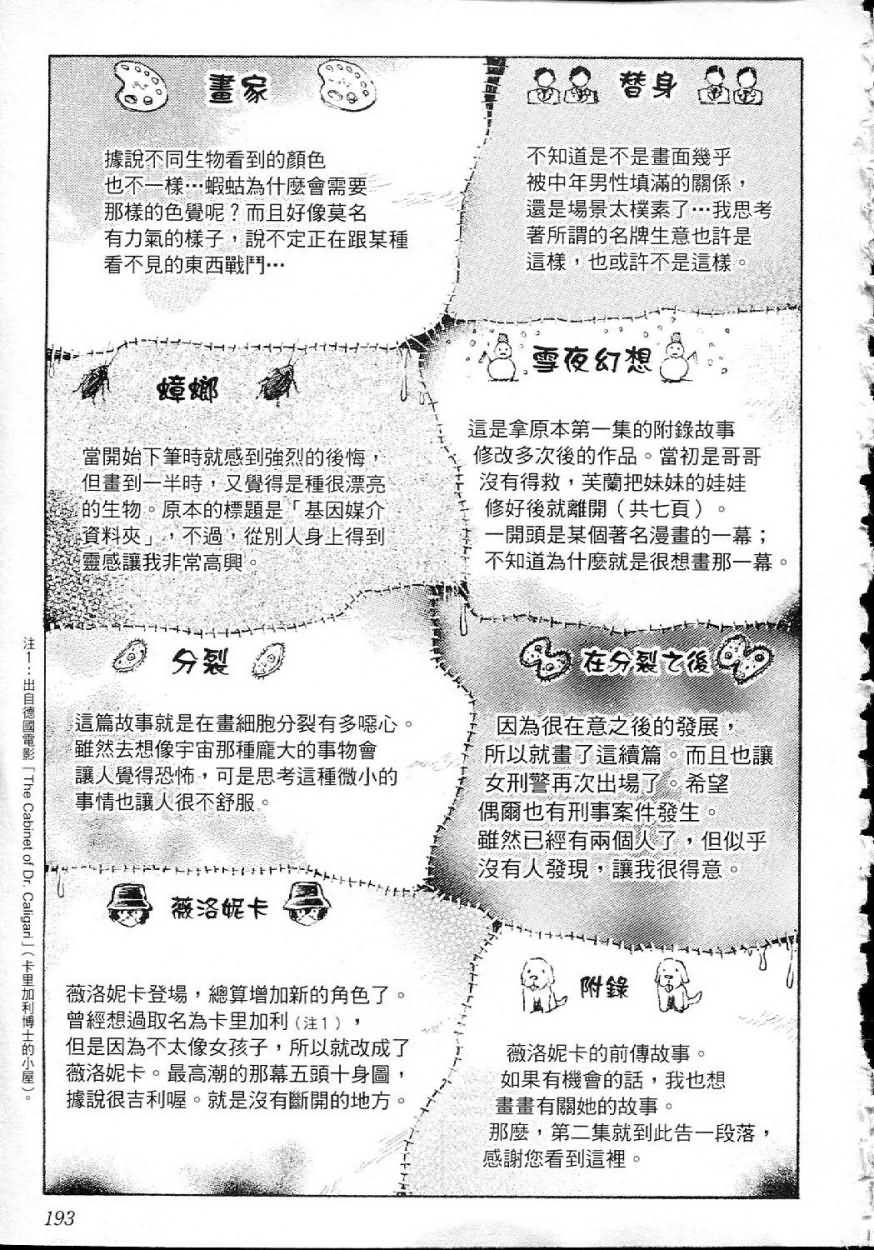 替身
不知道是不是畫面幾乎
被中年男性填滿的關係，
還是場景太樸素了…我思考
著所謂的名牌生意也許是
這樣，也或許不是這樣。
畫家
據說不同生物看到的顏色
也不一樣…蝦蛄為什麼會需要
那樣的色覺呢？而且好像莫名
有力氣的樣子，說不定正在跟某種
看不見的東西戰鬥…
雪夜幻想
這是拿原本第一集的附錄故事
修改多次後的作品。當初是哥哥
沒有得救，芙蘭把妹妹的娃娃
修好後就離開（共七頁）。
一開頭是某個著名漫畫的一幕；
不知道為什麼就是很想畫那一幕。
蟑螂
當開始下筆時就感到強烈的後悔，
但畫到一半時，又覺得是種很漂亮
的生物。原本的標題是「基因媒介
資料夾」，不過，從別人身上得到
靈感讓我非常高興。
分裂
這篇故事就是在畫細胞分裂有多噁心。
雖然去想像宇宙那種龐大的事物會
讓人覺得恐怖，可是思考這種微小的
事情也讓人很不舒服。
在分裂之後
因為很在意之後的發展，
所以就畫了這續篇。而且也讓
女刑警再次出場了。希望
偶爾也有刑事案件發生。
雖然已經有兩個人了，但似乎
沒有人發現，讓我很得意。
薇洛妮卡
薇洛妮卡登場，總算增加新的角色了。
曾經想過取名為卡里加利（注1），
但是因為不太像女孩子，所以就改成了
薇洛妮卡。最高潮的那幕五頭十身圖，
據說很吉利喔。就是沒有斷開的地方。
附錄
薇洛妮卡的前傳故事。
如果有機會的話，我也想
畫畫有關她的故事。
那麼，第二集就到此告一段落，
感謝您看到這裡。
注1：出自德國電影「The Cabinet of Dr. Caligari」（卡里加利博士的小屋）。
193